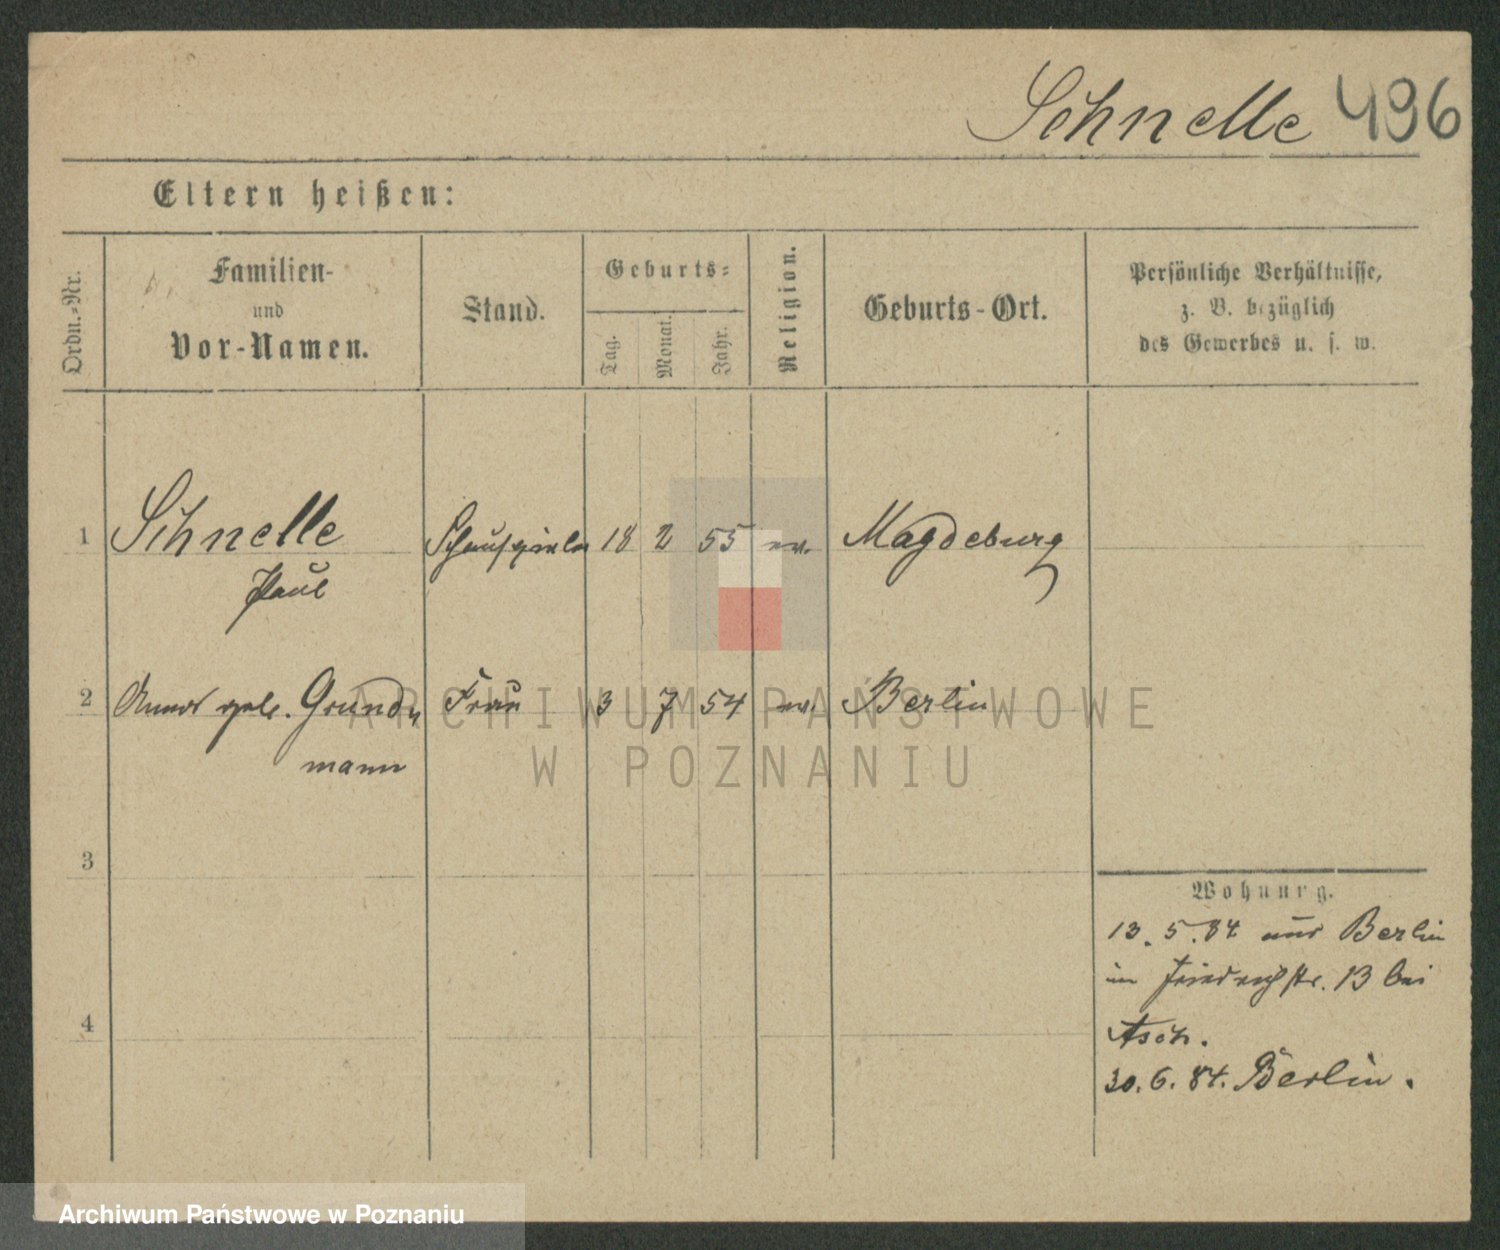 Schnelle 496
Eltern heißen:
Ordn.-Nr.
Familien-
und
Vor-Namen.
Stand.
Geburts-
Tag.
Monat.
Jahr.
Religion.
Geburts-Ort.
Persönliche Verhältnisse,
z. B. bezüglich
des Gewerbes u. s. w.
1 Schnelle Schauspieler 18 2 55 ev. Magdeburg
Paul
2 geb. Grund- Frau 3 7 54 ev. Berlin
mann
3
4
Wohnung.
13. 5. 84 aus Berlin
in Friedrichstr. 13 bei
Asch.
30. 6. 84. Berlin.
ARCHIWUM PAŃSTWOWE
W POZNANIU
Archiwum Państwowe w Poznaniu